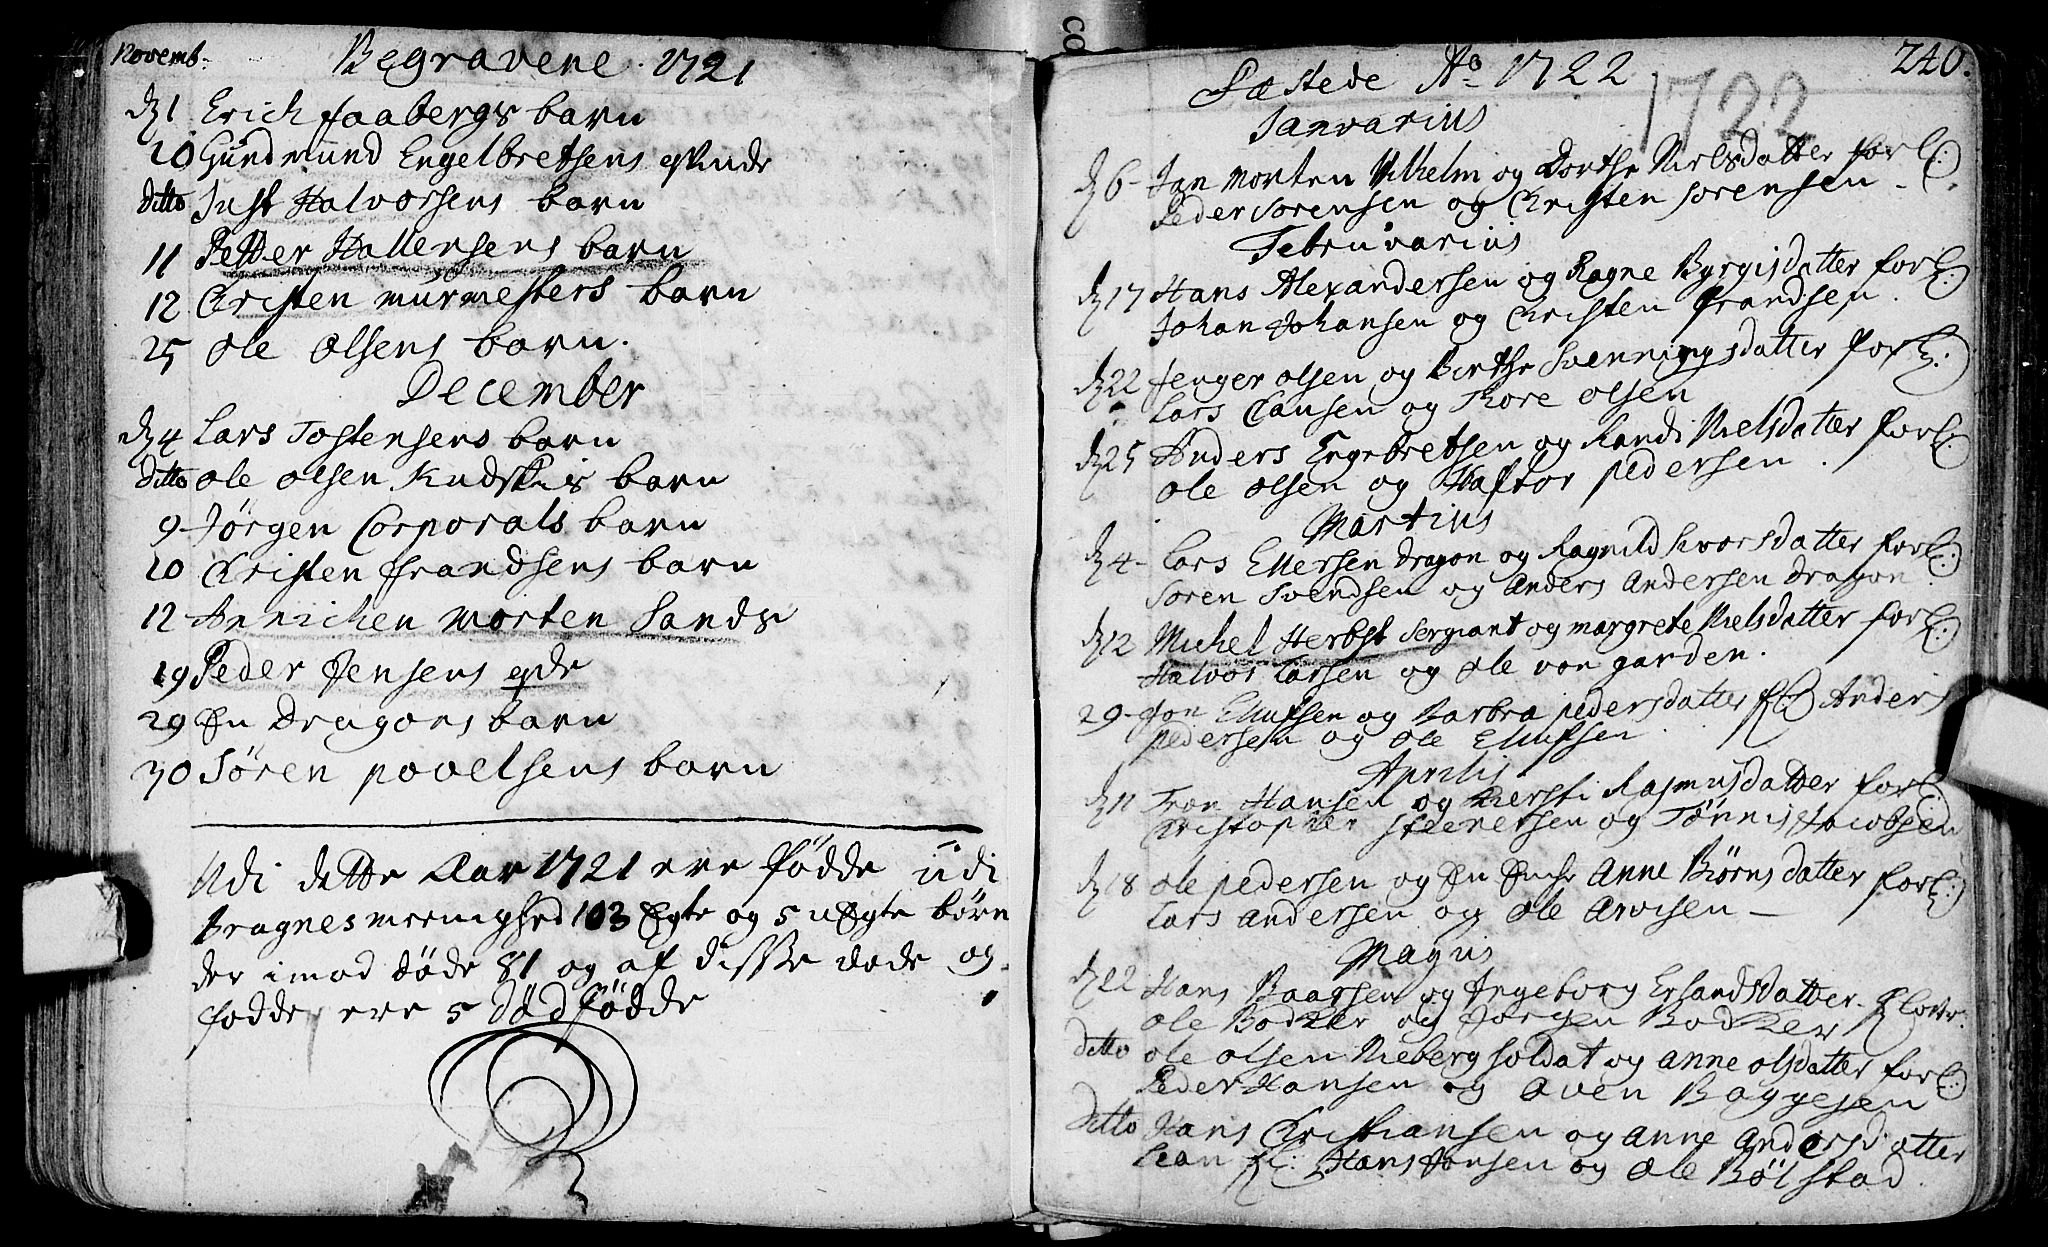 Novemb. Begravene. 1721
d 1 Erich faabergs barn
10 Gündmünd Engelbretsens qvinde
ditto Just Halvorsens barn
11 Petter Hallensens barn
12 Christen mürmesters barn
25 Ole Olsens barn.
December
d 4 Lars Tostensens barn
ditto Ole Olsen barn
9 Jørgen Corporals barn
10 Christen frandsens barn
12 Annichen Morten Sands
19 Peder Jensens
29 En Dragons barn
30 Søren povelsens barn
Udi dette Aar 1721 ere fødde üdi
Bragnes meenighed 103 Egte og 5 uEgte børn
der imod døde 81 og af disse døde og
fødde ere 5 dødfødde
240.
Fæstede Ao 1722
1722
Januarius
d 6 Jan Morten Vilhelm og Dorthe Nielsdatter forl:
Peder Sorensen og Christen Sorensen
Februarius
d 17 Hans Alexandersen og Ragne Byrgisdatter forl:
Johan Johansen og Christen frandsen.
d 22 Jenger olsen og Birthe Svenningsdatter forl:
Lars Clausen og Thore olsen
d 25 Anders Engebretsen og Randi Nielsdatter forl:
Ole olsen og Haftor pedersen.
Martius
d 4 Lars Ellersen Dragon og Ragnild Ivorsdatter forl:
Soren Svendsen og Anders Andersen Dragon
d 12 Michel Herbst Sergiant og margrete Nielsdatter forl:
Halvor Larsen og Ole von garden.
29 Jon Ellufsen og Barbra pedersdatter fl: Anders
Pedersen og Ole Ellufsen.
Aprilis
d 11 Tron Hansen og Kiersti Rasmusdatter forl:
Christopher Steenersen og Tønnis Jacobsen
d 18 Ole Pedersen og En Enche Anne Biørnsdatter forl:
Lars Andersen og Ole Arvesen
Majus
d 22 Hans Baarsen og Ingeborg Erlandsdatter.
Ole Bødker og Jørgen Bødker
ditto Ole olsen Vieberg soldat og Anne olsdatter forl:
Peder Hansen og Aven Baggesen
ditto Hans Christiansen og Anne Andersdatter
fl: Hans Jonsen og Ole Bølstad.